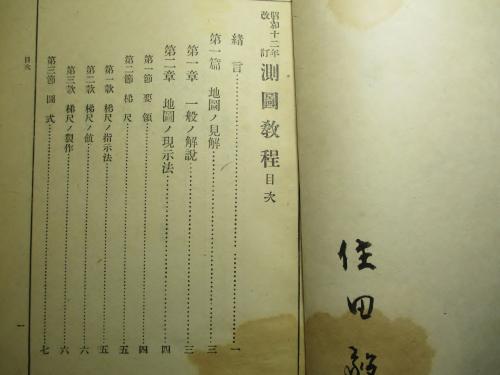 昭和十二年
改訂
測圖教程目次
緒言…………一
第一篇 地圖ノ見解…………三
第一章 一般ノ解說…………三
第二章 地圖ノ現示法…………四
第一節 要領…………四
第二節 梯尺…………五
第一款 梯尺ノ指示法…………五
第二款 梯尺ノ…………六
第三款 梯尺ノ製作…………六
第三節 圖式…………七
目次
一
住田